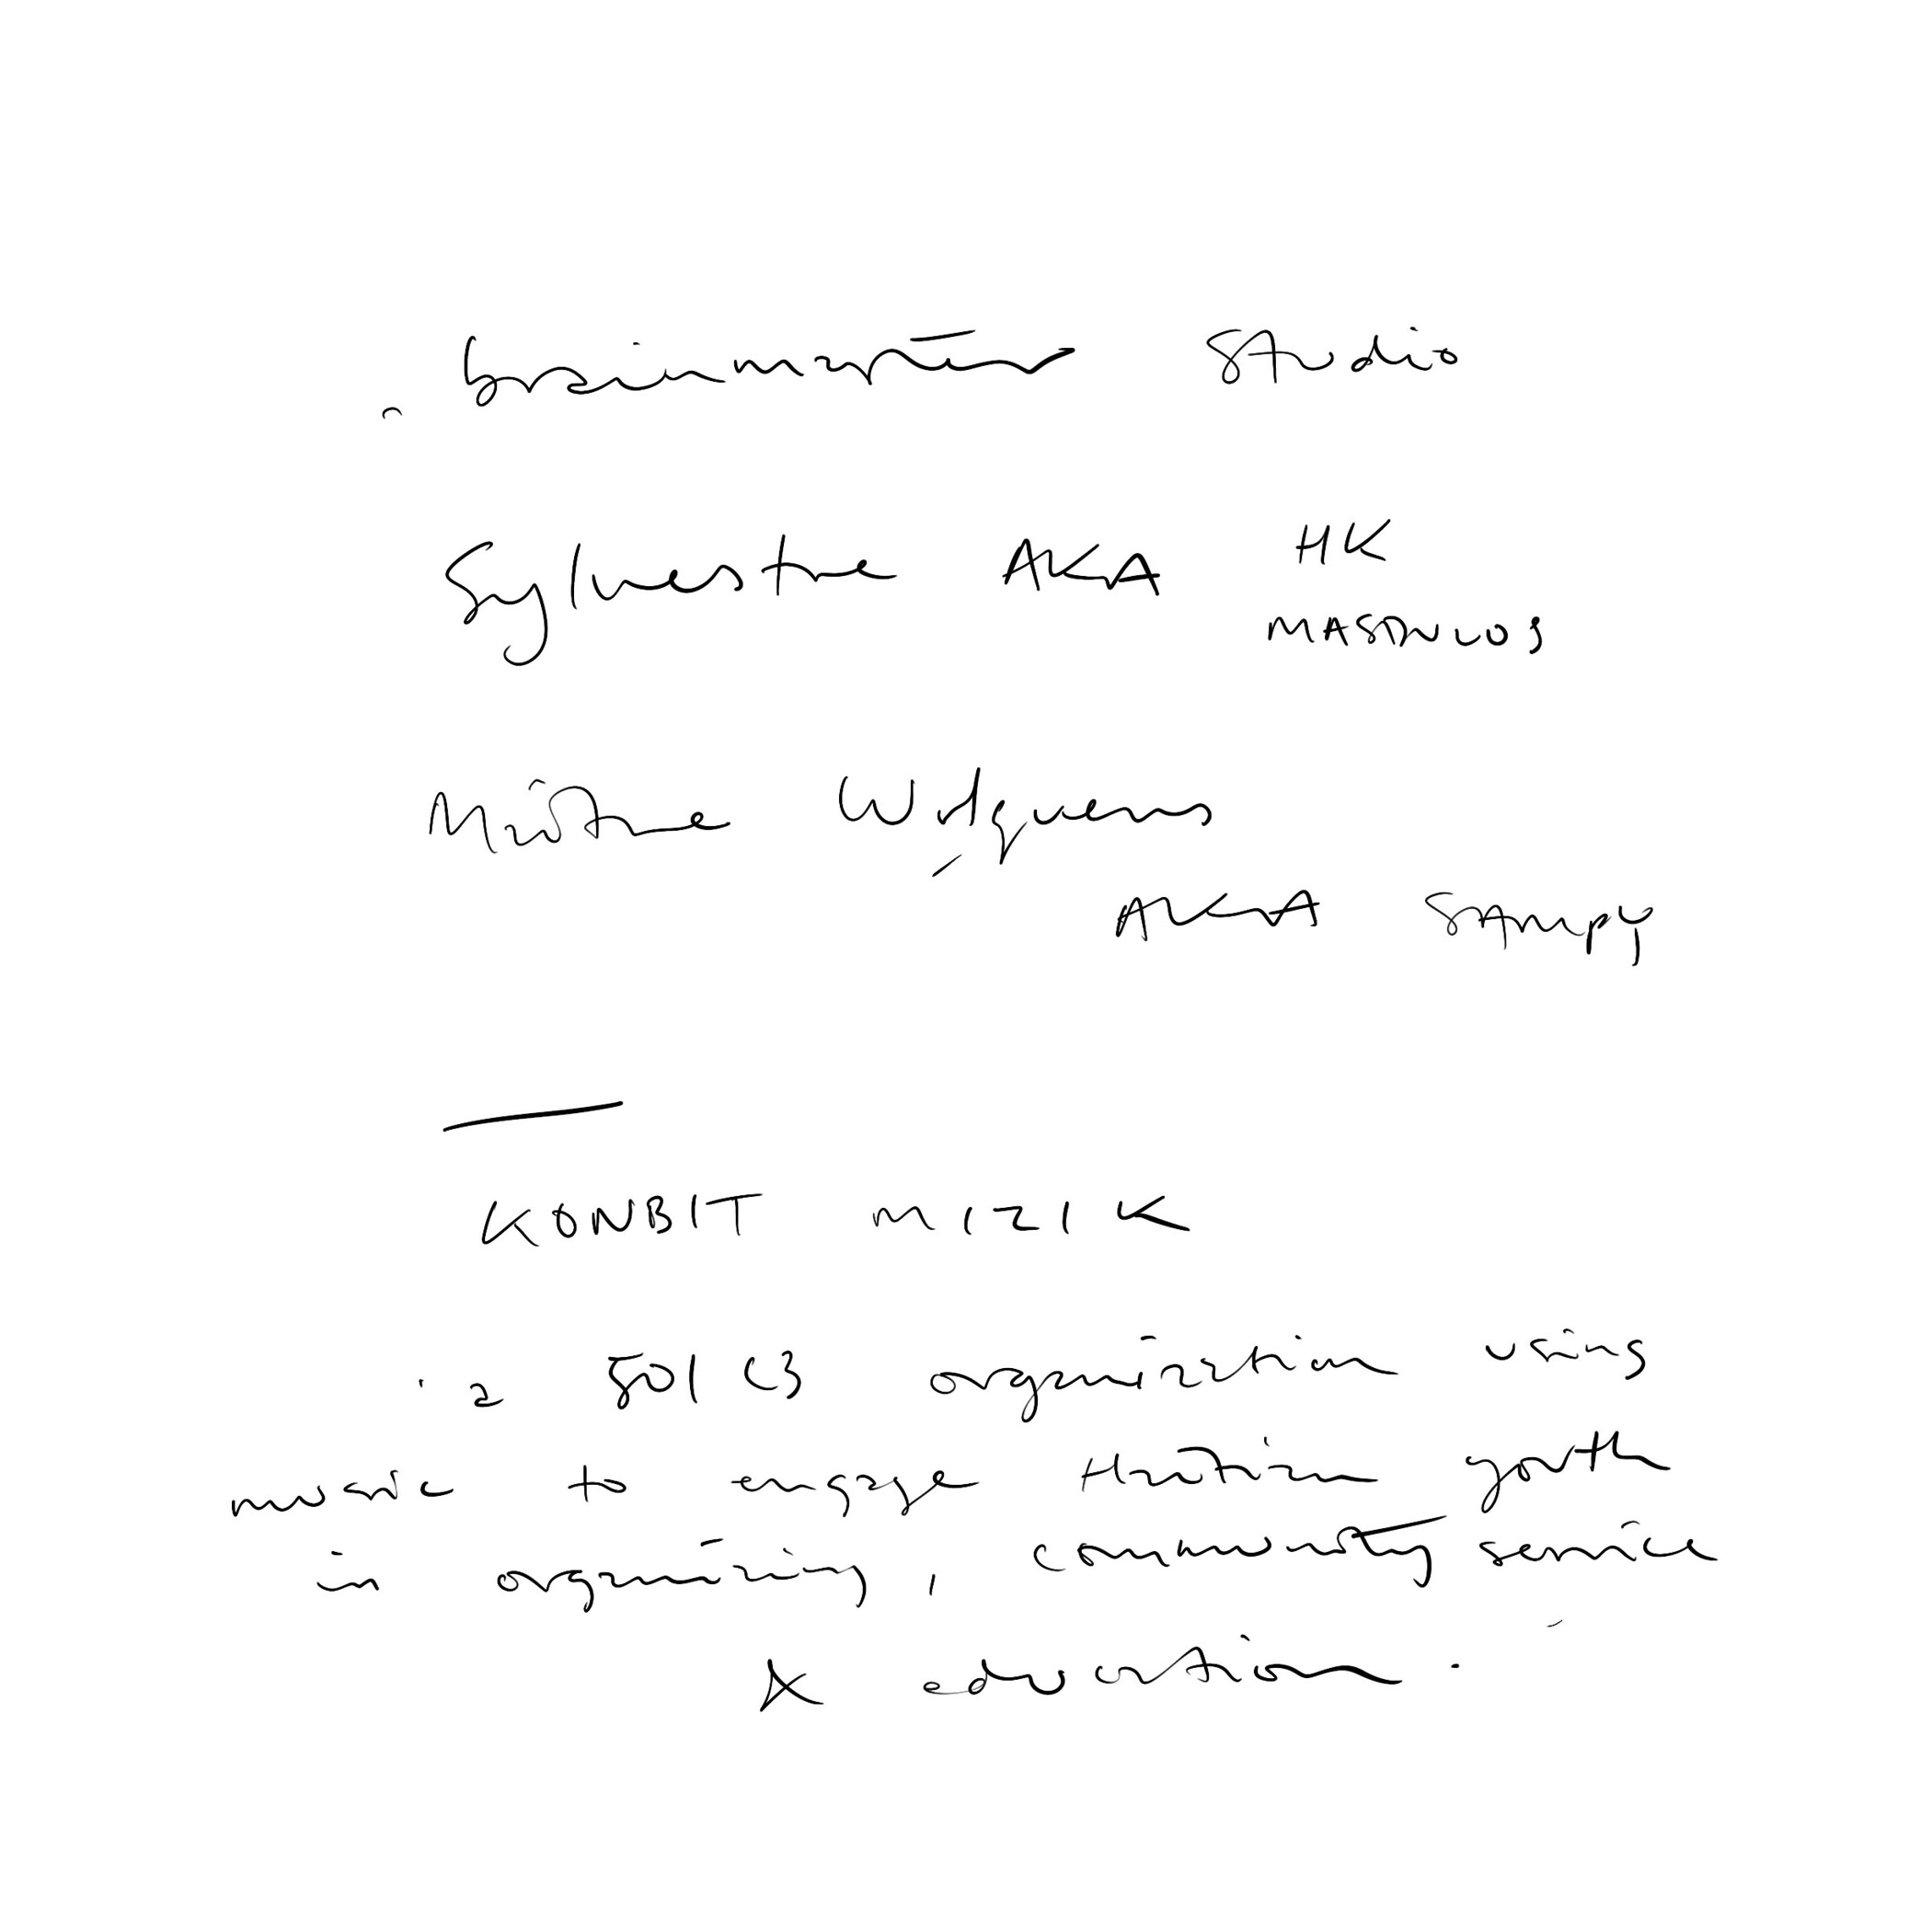 brainmaster Studio
Sylvestre AKA HK
Mistre Widguens
AKA STAMPY
KONBIT MIZIK
"a 501 C3 organization using
music to engage Haitian youth
in organizing, community service
& education."